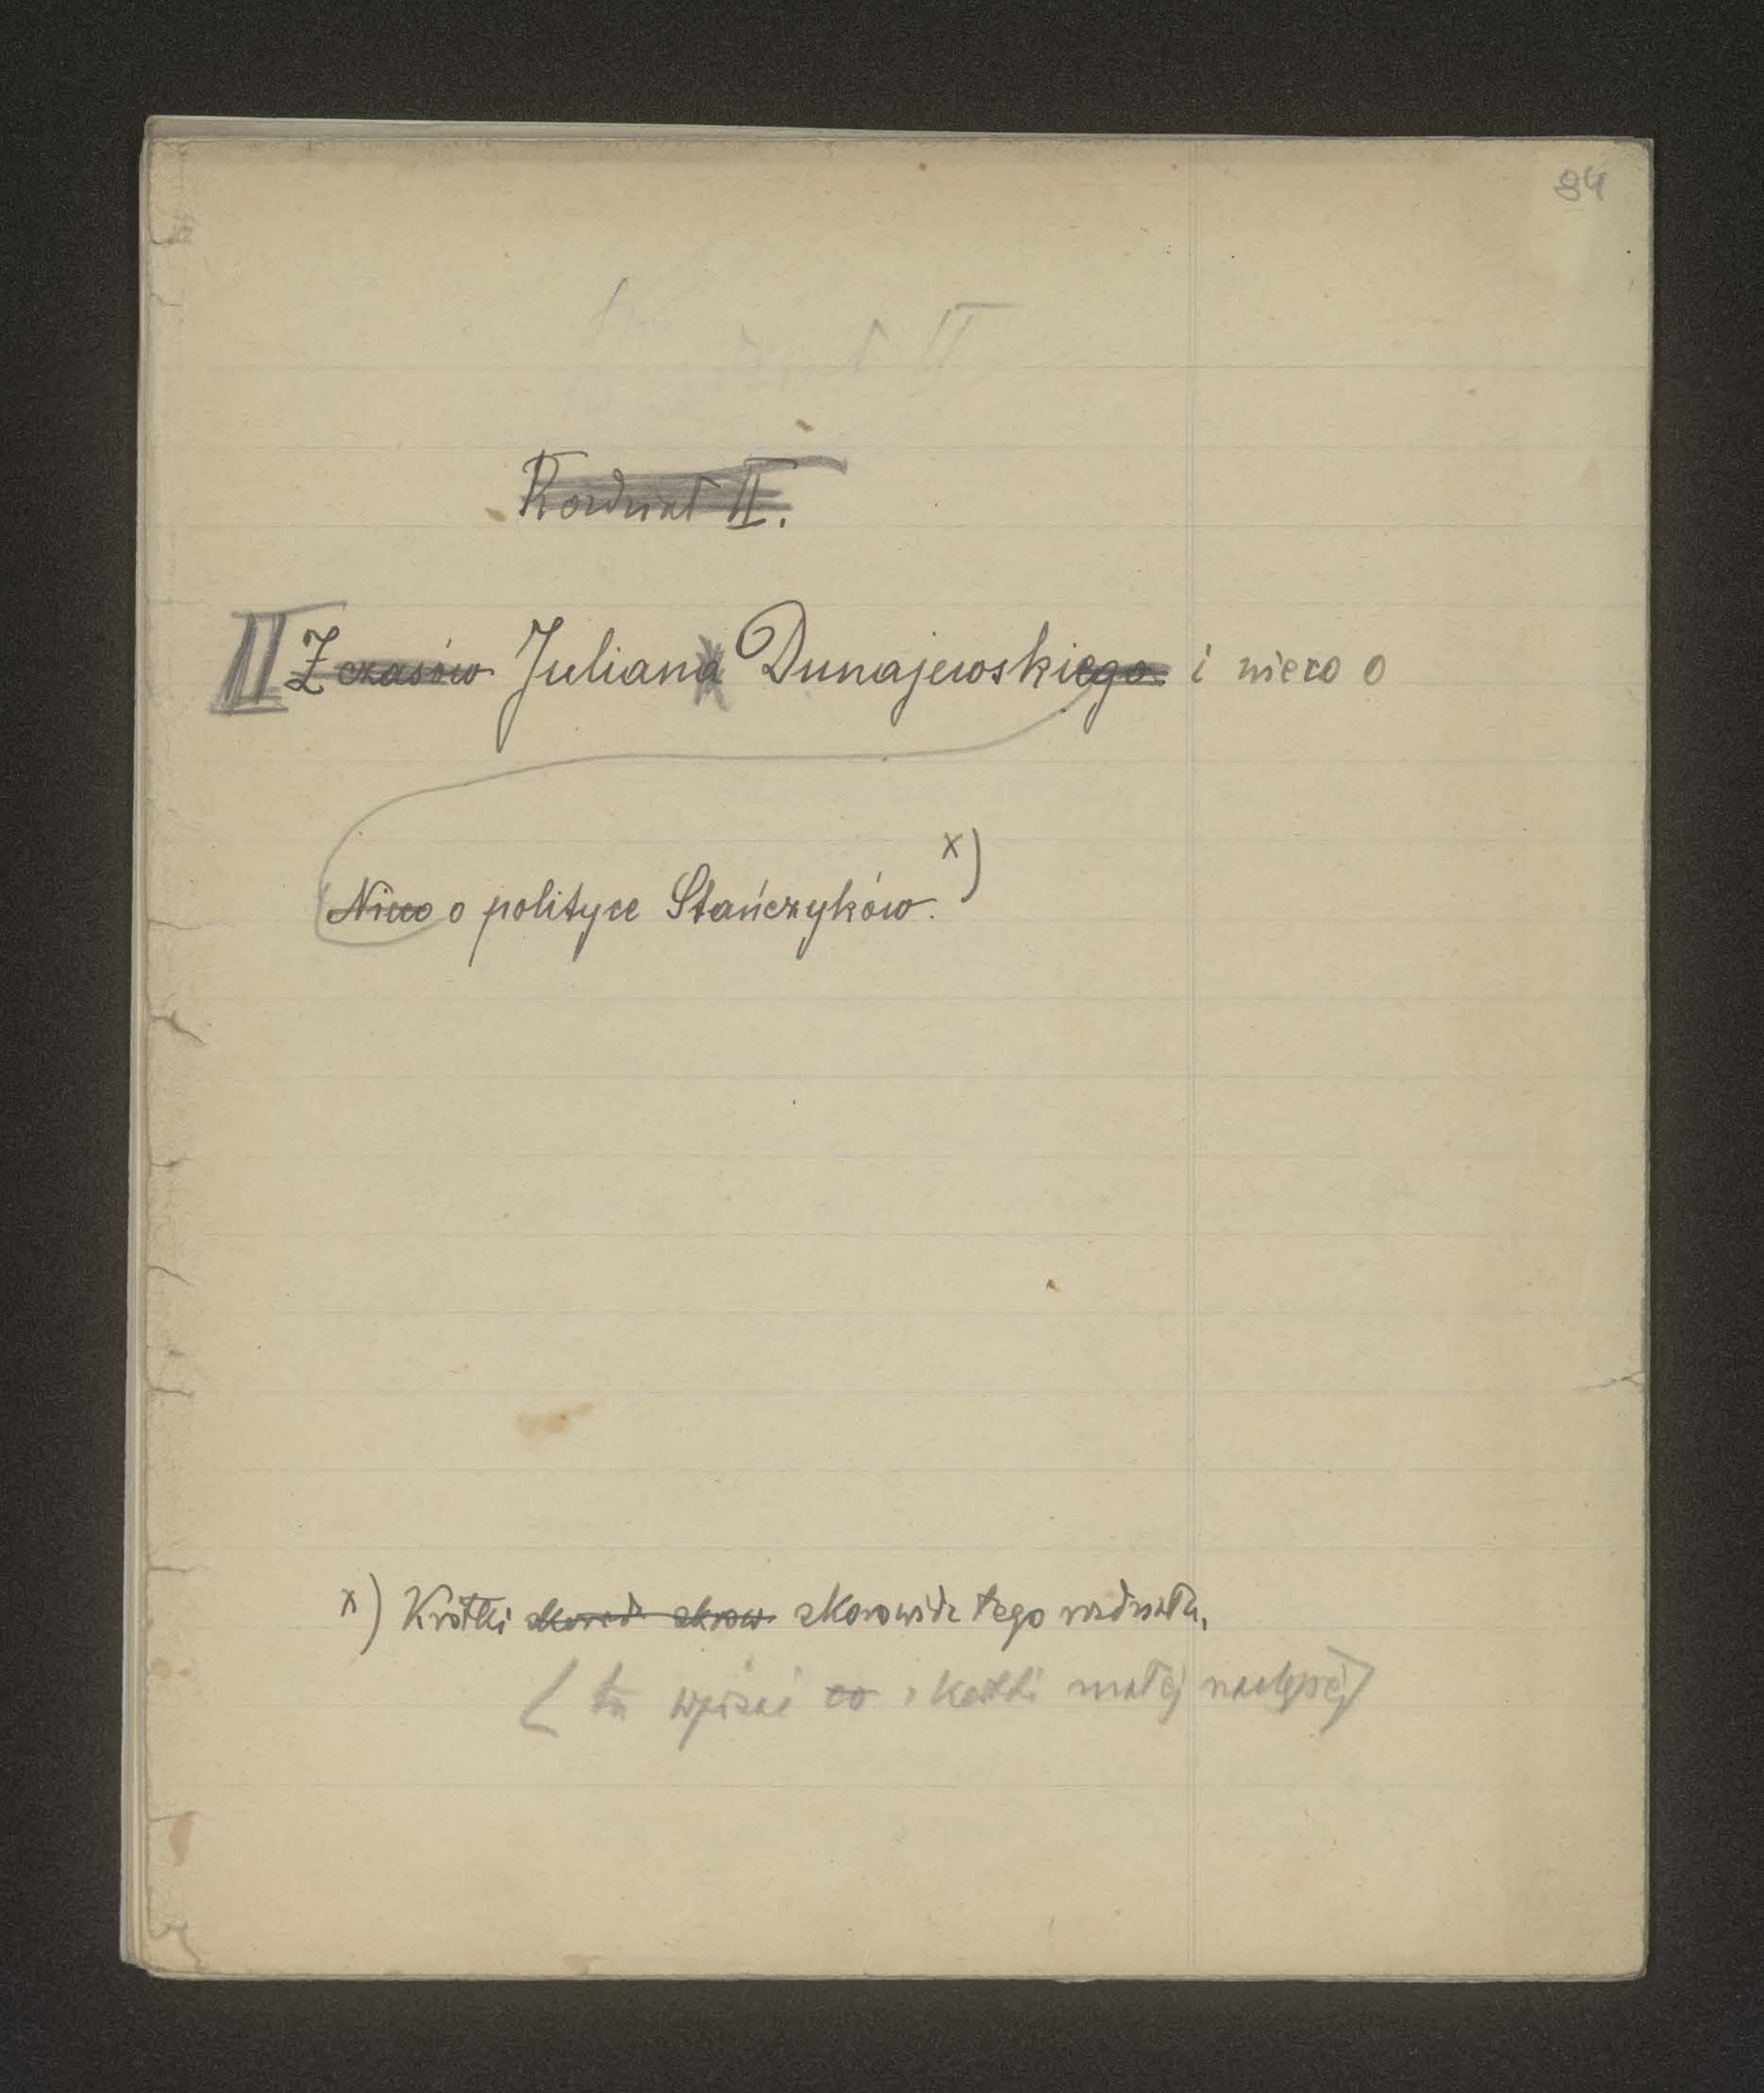 84
Rozdział II.
II Z czasów Juliana Dunajewskiego i nieco o
Nieco o polityce Stańczyków. x)
x) Krótki skorowidz tego rozdziału.
(tu wpisać co z kartki małej